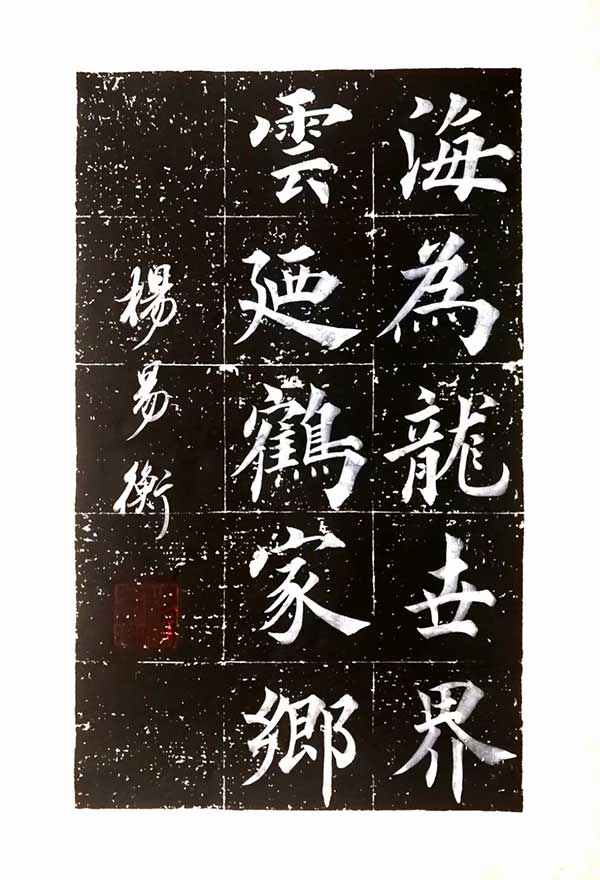 海為龍世界
雲廼鶴家鄉
楊易衡